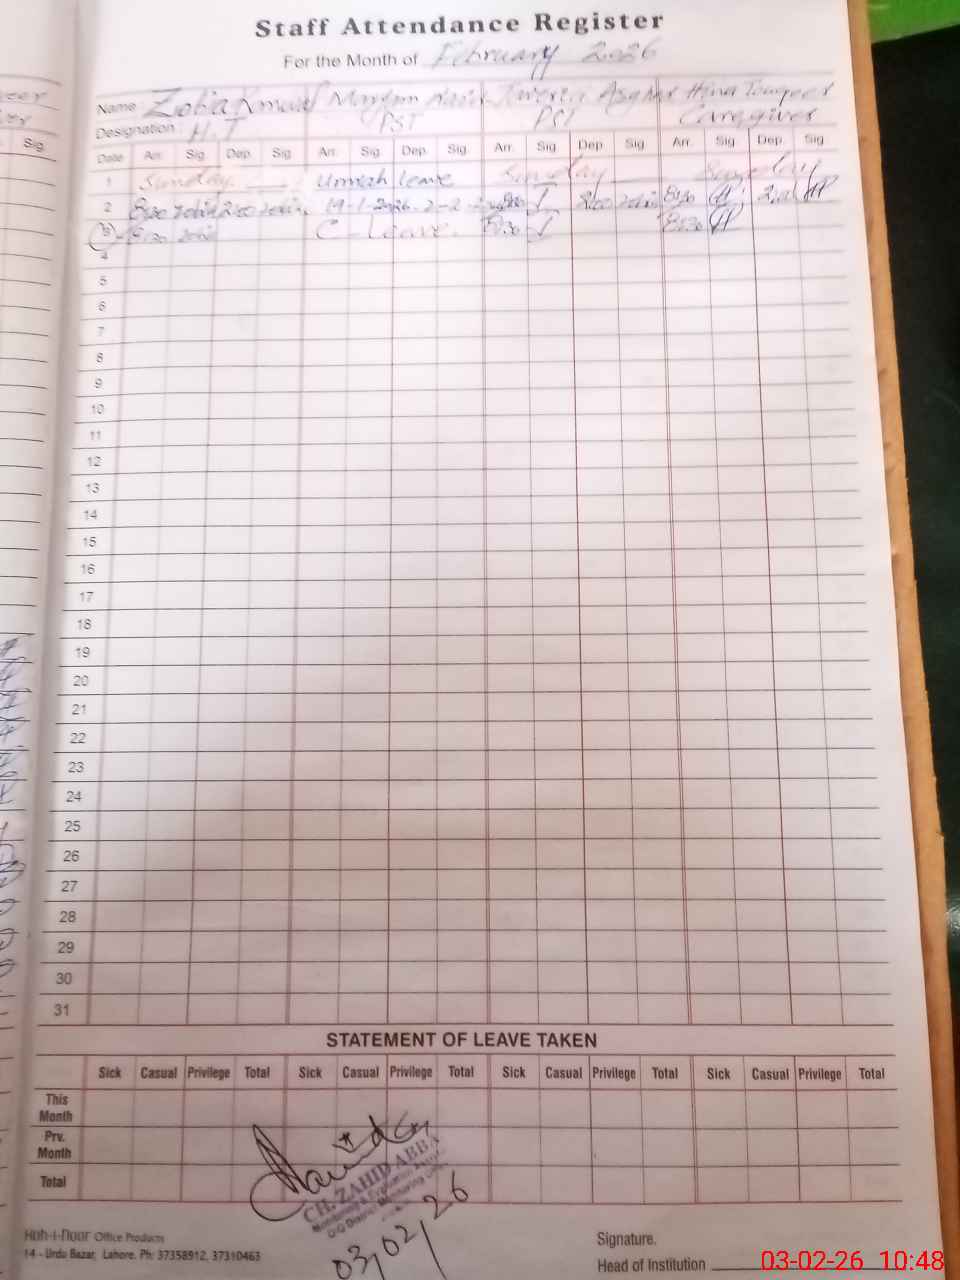 Staff Attendance Register
For the Month of February 2026
Name Zobia Maryam Javeria Asghar Hina
Designation H.T PST PST Caregiver
Date Arr. Sig. Dep. Sig Arr. Sig. Dep. Sig Arr. Sig Dep Sig Arr. Sig Dep. Sig
1 Sunday Umrah leave Sunday Sunday
2 8:30 2:00 19-1-2026 2-2- 8:30 2:00 8:30 2:00
3 8:30 C-Leave. 8:30 8:30
4
5
6
7
8
9
10
11
12
13
14
15
16
17
18
19
20
21
22
23
24
25
26
27
28
29
30
31
STATEMENT OF LEAVE TAKEN
Sick Casual Privilege Total Sick Casual Privilege Total Sick Casual Privilege Total Sick Casual Privilege Total
This Month
Prv. Month
Total
CH. ZAHID ABBA
Monitoring & Evaluation
O/O District Monitoring
03/02/26
Office Products
14 - Urdu Bazar, Lahore. Ph: 37358912, 37310463
Signature.
Head of Institution
03-02-26 10:48
Sig